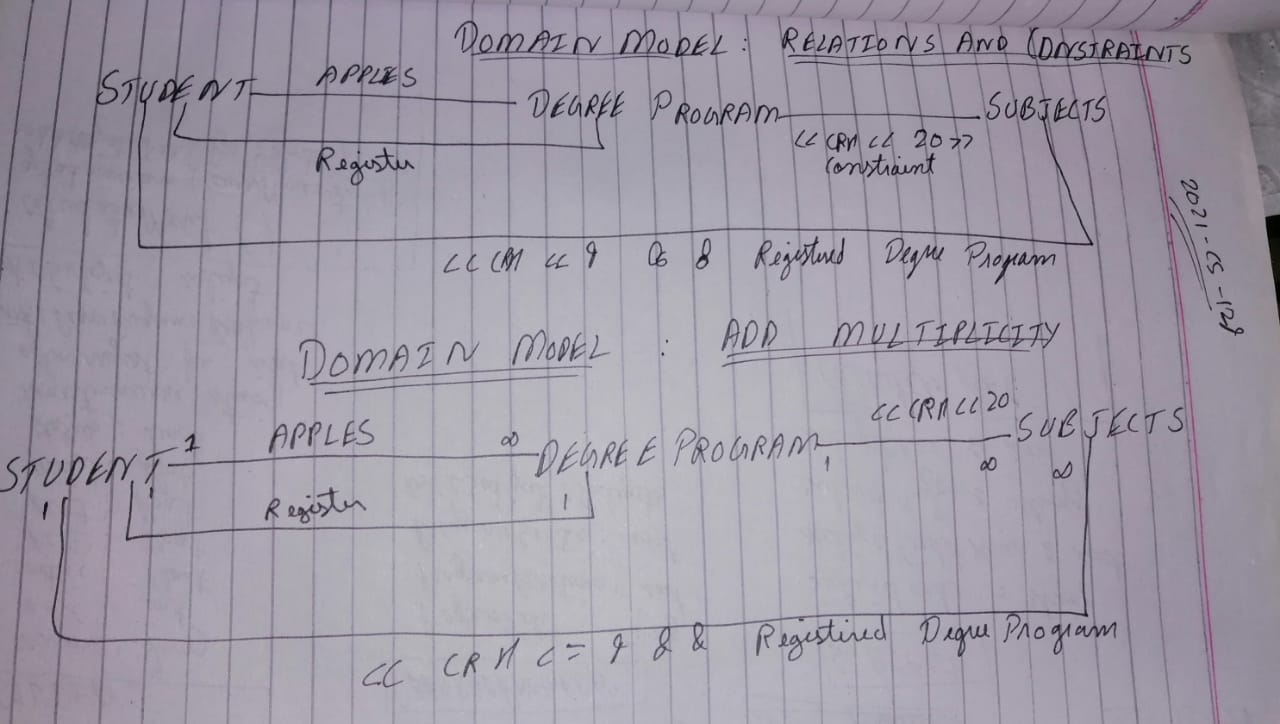 DOMAIN MODEL: RELATIONS AND CONSTRAINTS
STUDENT APPLES DEGREE PROGRAM SUBJECTS
Register
<< CRH << 20 >>
Constraint
<< CRH << 9 & & Registered Degree Program
2021-CS-128
DOMAIN MODEL : ADD MULTIPLICITY
<< CRH << 20
STUDENT 1 APPLES ∞ DEGREE PROGRAM SUBJECTS
1 ∞ ∞
1 1 Register 1
<< CRH <= 9 & & Registired Degree Program